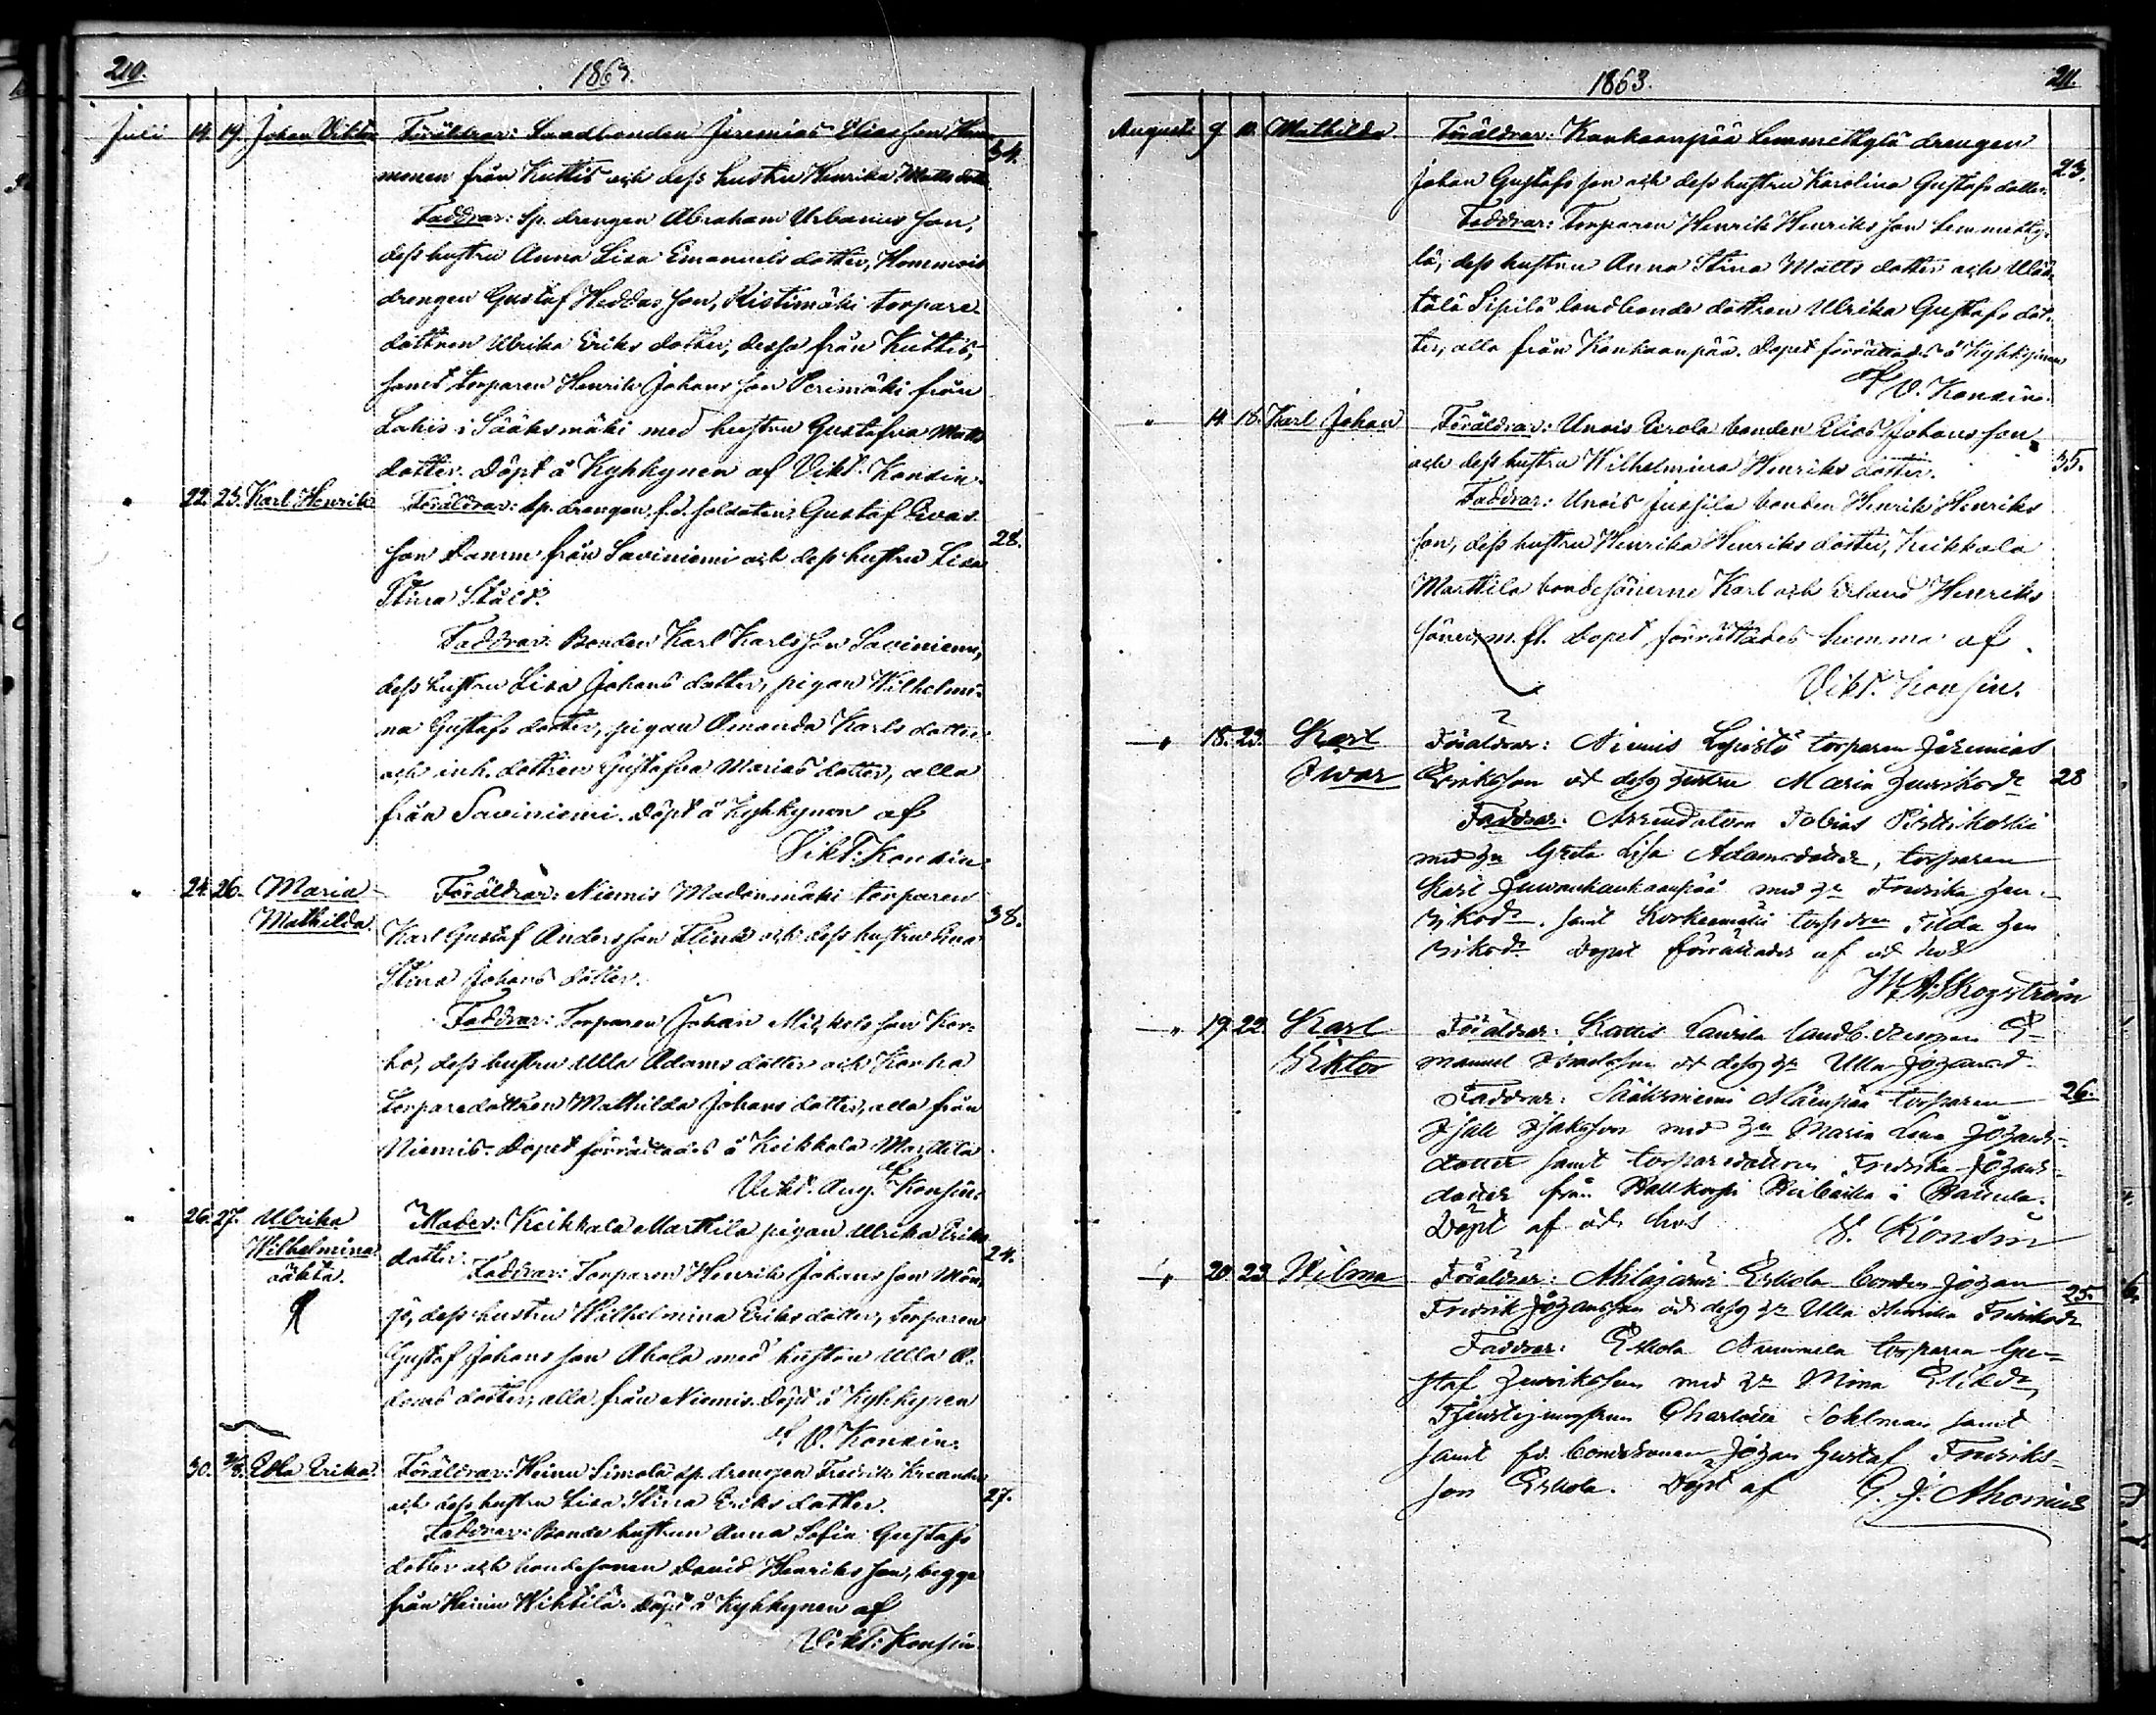 210.
1863.
Juli 14. 19. Johan Viktor Föräldrar: Landbonden Jeremias Eliasson
monen från Kuttis och dess hustru Henrika Matts dotter 34.
Faddrar: Sp. drengen Abraham Urbanus son,
dess hustru Anna Lisa Emanuels dotter, Hommois
drengen Gustaf Heddas son, Ristimäki torpare
dottren Ulrika Eriks dotter, dessa från Kuttis,
samt torparen Henrik Johans son Perimäki från
Lahis i Sääksmäki med hustru Gustafva Matts
dotter. Döpt å Kyhkynen af Vikt. Konsin.
" 22. 25. Karl Henrik Föräldrar: Sp. drengen, f.d. soldaten Gustaf Evas
son från Saviniemi och dess hustru Lisa 28.
Stina
Faddrar: Bonden Karl Karlsson Saviniemi,
dess hustru Lisa Johans dotter, pigan Wilhelmi-
na Gustafs dotter, pigan Amanda Karls dotter
och inh. dottren Gustafva Marias dotter, alla
från Saviniemi. Döpt å Kyhkynen af
Vikt. Konsin.
" 24. 26. Maria Föräldrar: Niemis Madonmäki torparen
Mathilda. Karl Gustaf Andersson Flink och dess hustru 38.
Stina Johans dotter.
Faddrar: Torparen Johan Michels son Kor-
ho, dess hustru Ulla Adams dotter och Konka
torparedottren Mathilda Johans dotter, alla från
Niemis. Dopet förrättades å Keikkala Marttila
af Vikt. Aug. Konsin.
" 26. 27. Ulrika Moder: Keikkala Marttila pigan Ulrika Eriks
Wilhelmina dotter. 24.
oäkta. Faddrar: Torparen Henrik Johans son
dess hustru Wilhelmina Eriks dotter, torparen
Gustaf Johans son Ahola med hustru Ulla A-
dams dotter, alla från Niemis. Döpt å Kyhkynen
af V. Konsin.
30. 2/8. Edla Erika. Föräldrar: Heinu Simola sp. drengen Fredrik
och dess hustru Lisa Stina Eriks dotter. 27.
Faddrar: Bonde hustrun Anna Sofia Gustafs
dotter och bondesonen David Henriks son, begge
från Heinu Wihtilä. Döpt å Kyhkynen af
Vikt. Konsin.
1863.
211.
Augusti 9 10. Mathilda Föräldrar: Kankaanpää Lemmettylä drengen
Johan Gustafs son och dess hustru Karolina Gustafs dotter. 23.
Faddrar: Torparen Henrik Henriks son Lemmetty-
lä, dess hustru Anna Stina Matts dotter och
Sipilä landbonde dottren Ulrika Gustafs dot-
ter, alla från Kankaanpää. Dopet förrättades å Kyhkynen
af V. Konsin.
" 14. 16. Karl Johan Föräldrar: Unois Eerola bonden Elias Johans son
och dess hustru Wilhelmina Henriks dotter. 35.
Faddrar: Unois Jussila bonden Henrik Henriks
son, dess hustru Henrika Henriks dotter, Keikkala
Marttila bondesönerne Karl och Erland Henriks
söner, m. fl. Dopet förrättades hemma af
Vikt. Konsin.
" 18. 23. Karl Föräldrar: Niemis Lepistö torparen Jeremias
Iwar Eriksson o. dess hustru Maria Henriksdr 28
Faddrar: Arrendatorn Tobias
med hu Greta Lisa Adamsdotter, torparen
Karl med hu Fredrika Hen-
riksdr. samt Tilda Hen
riksdr Dopet förrättades af och hos
W. A. Skogström
" 19. 22. Karl Föräldrar: Laurila landb. drengen E-
Viktor manuel o dess hu Ulla Johansd.
Faddrar: Sääksniemi torparen 26.
med hu Maria Lena Johans-
dotter samt torparedottren Fredrika Johans-
dotter från i
Döpt af och hos V. Konsin
" 20. 23 Wilma Föräldrar: Eskola bonden Johan
Fredrik Johansson och dess hu Ulla Henrika Fredriksdr 25.
Faddrar: Eskola Nummela torparen Gu-
staf Henriksson med hu Mina Eliedr,
Charlotta Sohlman samt
samt fd. bondesonen Johan Gustaf Fredriks-
son Eskola. Döpt af G. J. Ahonius